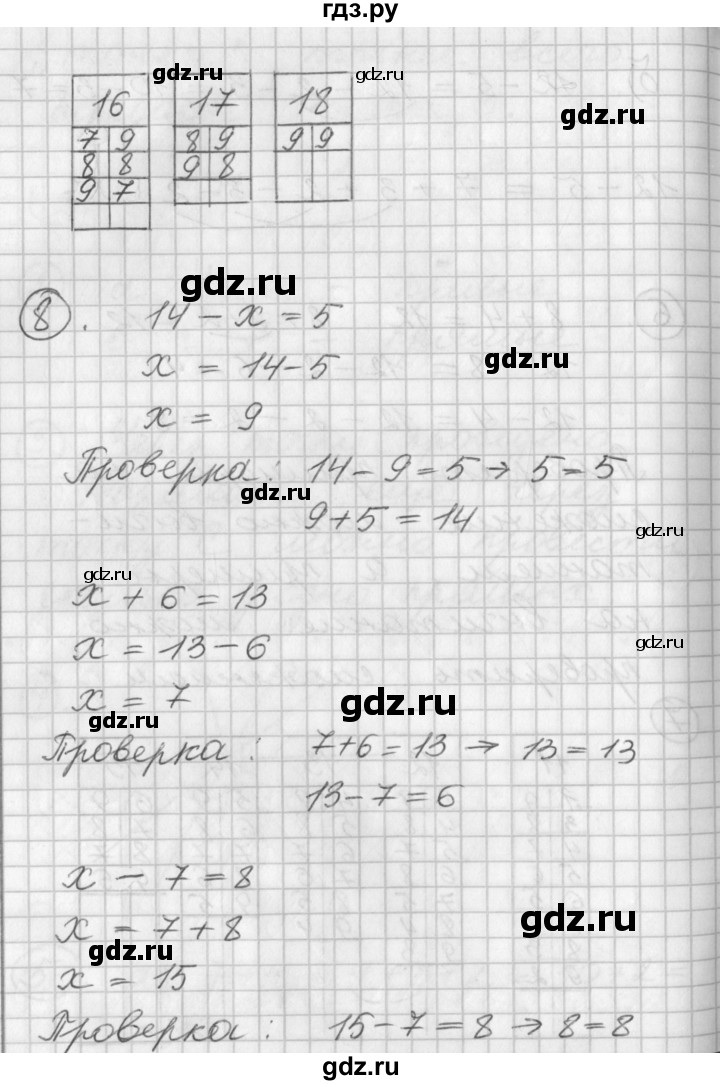 гдз.ру
gdz.ru gdz.ru gdz.ru
16 17 18
gdz.ru
7 9 8 9 9 9
8 8 9 8
9 7
gdz.ru
8. 14 - x = 5
gdz.ru
x = 14 - 5
x = 9
Проверка: 14 - 9 = 5 → 5 = 5
gdz.ru
9 + 5 = 14
gdz.ru
gdz.ru
x + 6 = 13
x = 13 - 6
gdz.ru
x = 7
gdz.ru
gdz.ru
Проверка: 7 + 6 = 13 → 13 = 13
13 - 7 = 6
x - 7 = 8
gdz.ru
x = 7 + 8
gdz.ru
x = 15
Проверка: 15 - 7 = 8 → 8 = 8
gdz.ru